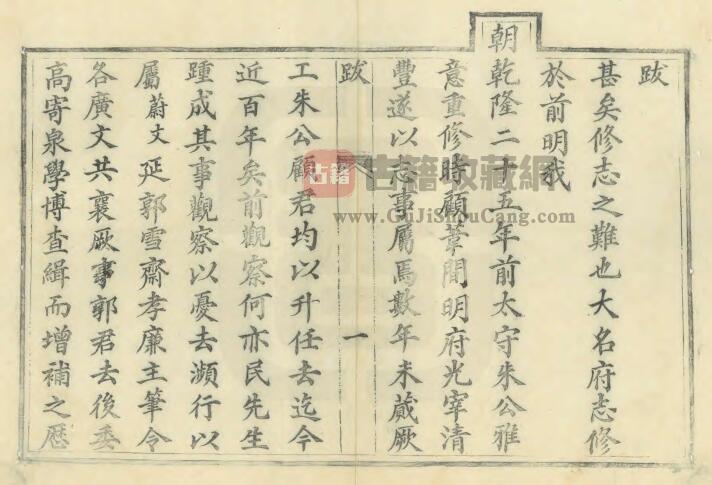 跋
甚矣修志之難也大名府志修
於前明我
朝乾隆二十五年前太守朱公雅
意重修時顧葦間明府光宰清
豐遂以志事屬焉數年未蕆厥
跋 一
工朱公顧君均以升任去迄今
近百年矣前觀察何亦民先生
踵成其事觀察以憂去瀕行以
屬蔚文延郭雪齋孝廉主筆令
各廣文共襄厥事郭君去後委
高寄泉學博查緝而增補之歷
古籍
古籍收藏網
www.GuJiShouCang.com